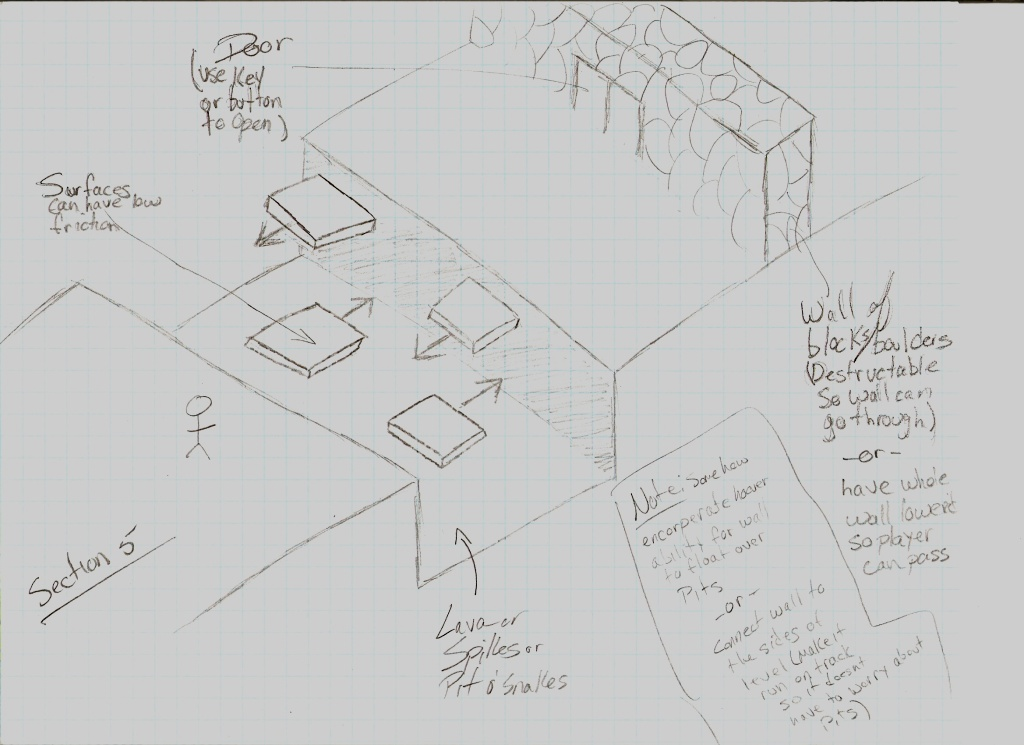 Door
(use Key
or button
to Open)
Surfaces
can have low
friction
Wall of
blocks/boulders
(Destructable
So wall can
go through)
-or-
have whole
wall lower
so player
can pass
Note: Somehow
encorperate hoover
ability for wall
to float over
Pits
-or-
Connect wall to
the sides of
level (make it
run on track
so it doesnt
have to worry about
pits)
Section 5
Lava or
Spikes or
Pit o' Snakes